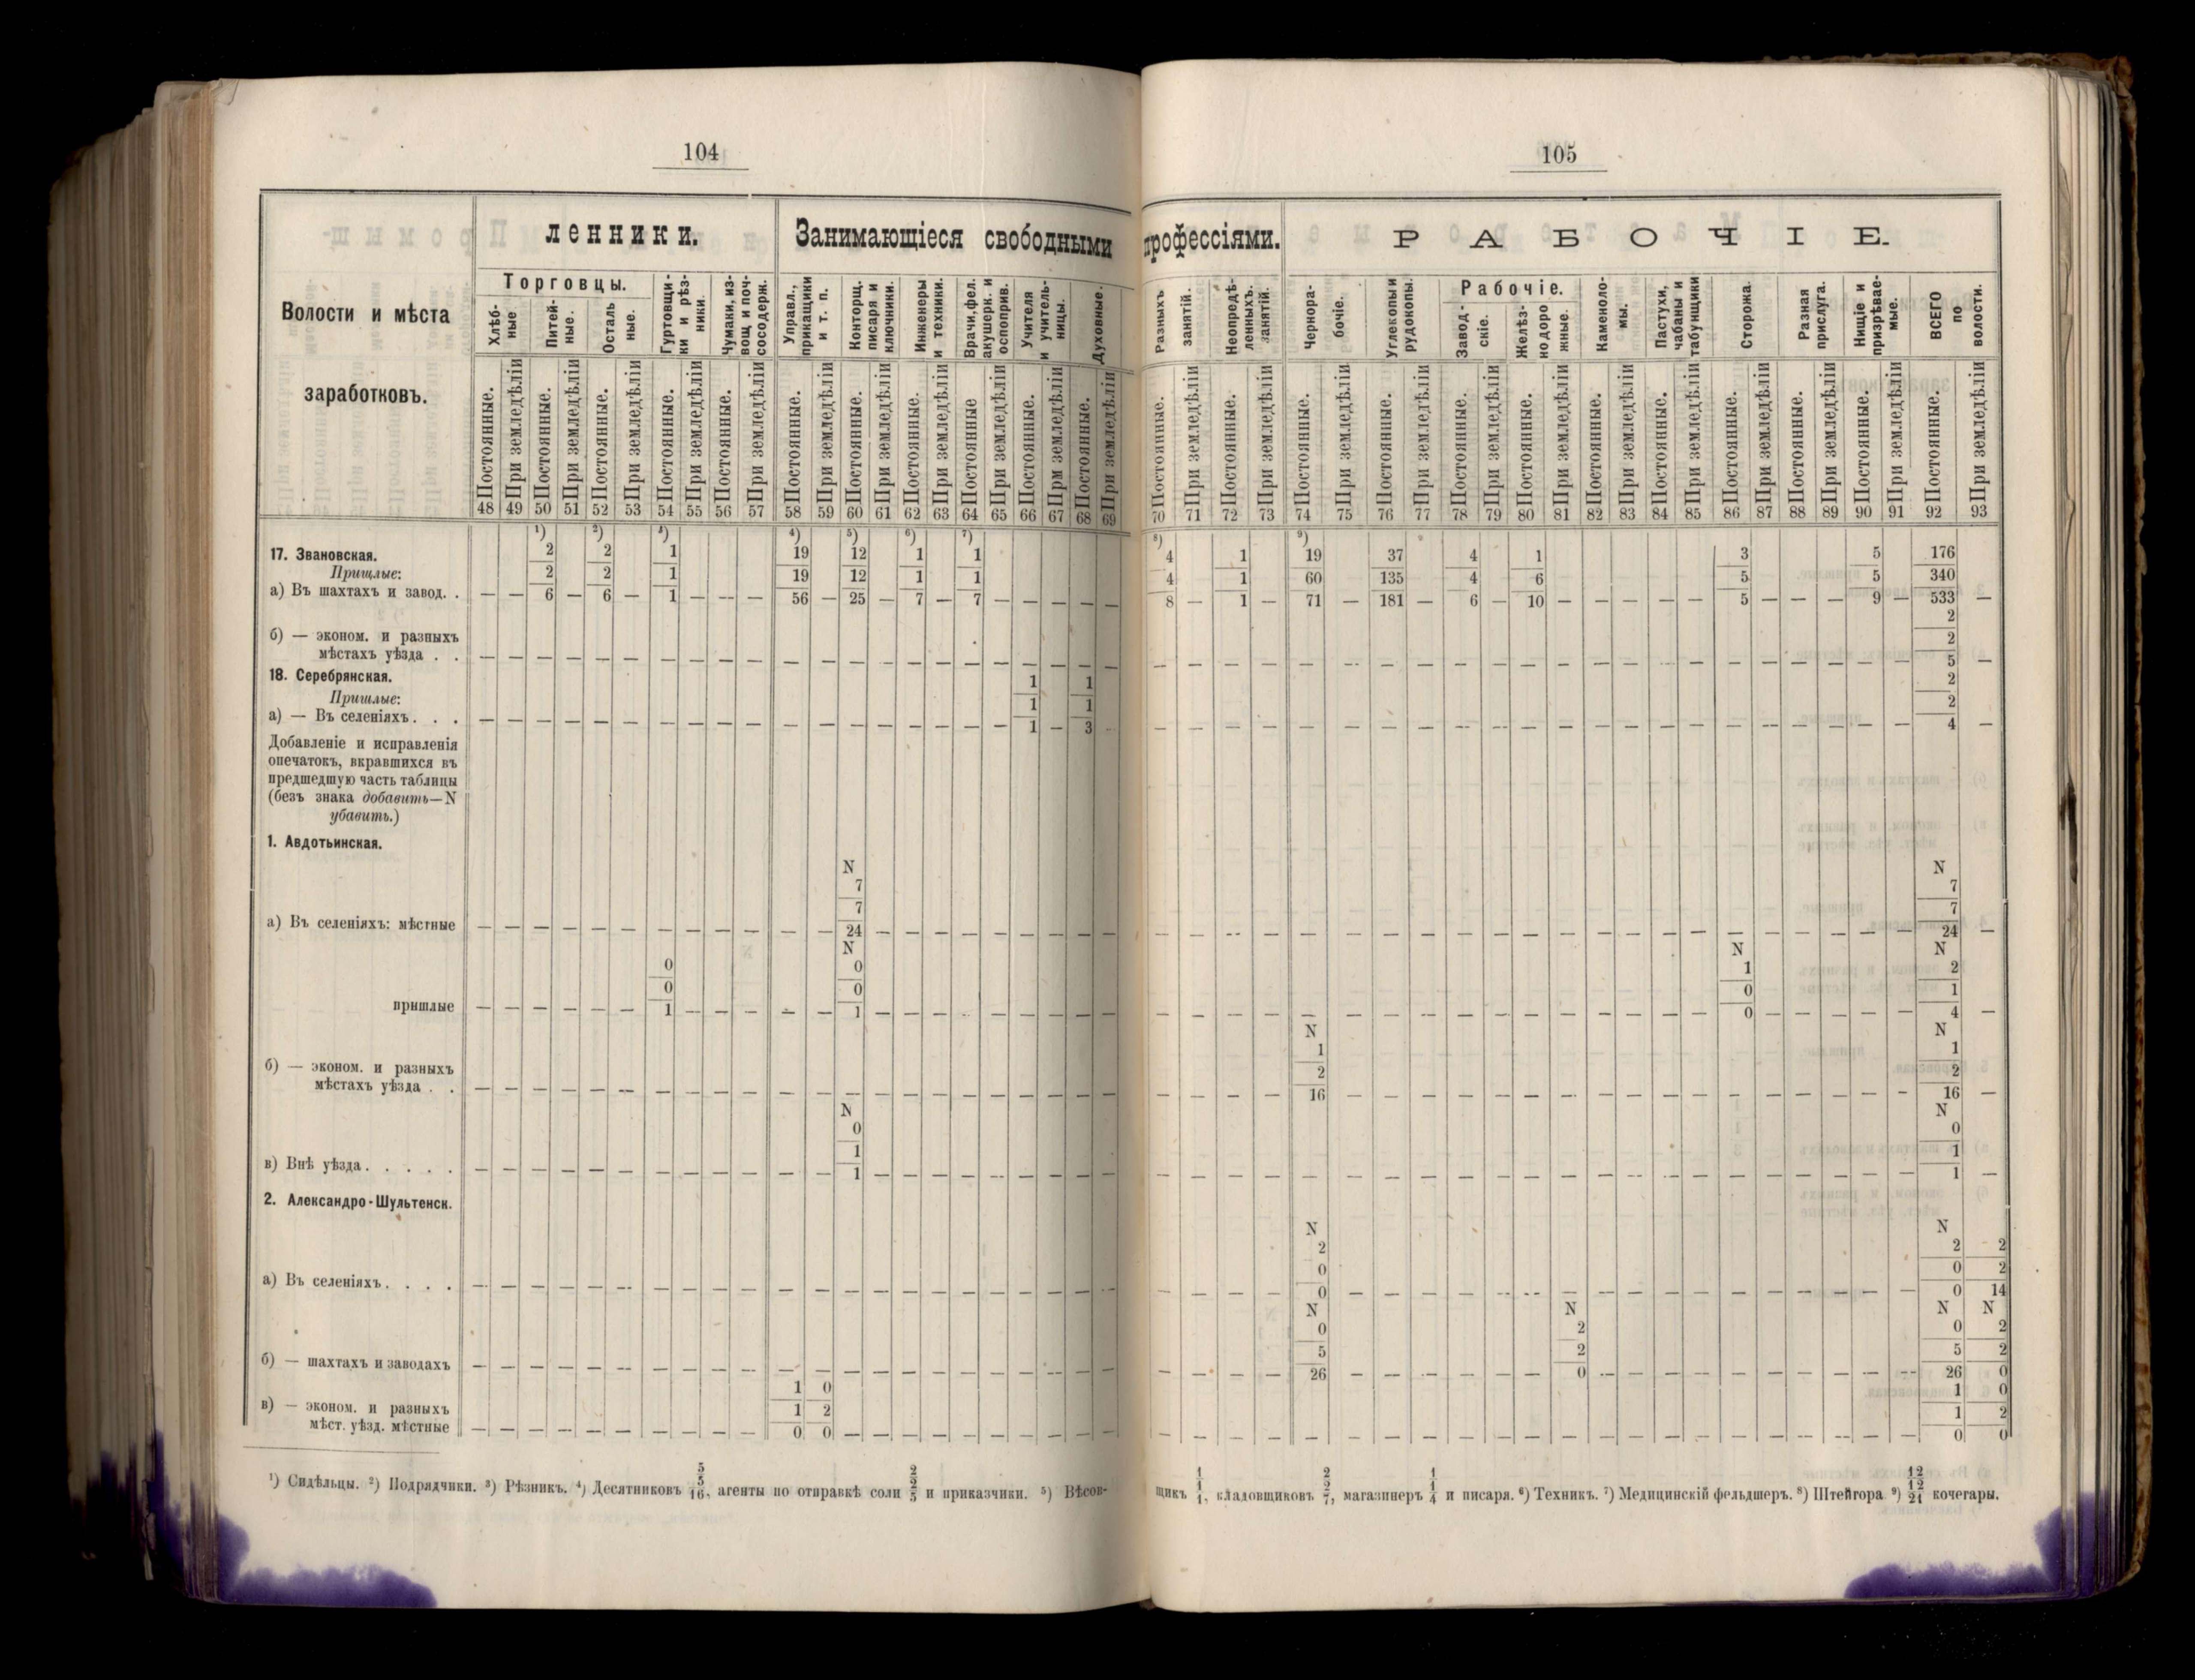 104
ленники.
Занимающіеся свободными
Волости и мѣста
заработковъ.
Торговцы.
Хлѣб-
ные
Питей-
ные.
Осталь
ные.
Гуртовщи-
ки и рѣз-
ники.
Чумаки, из-
вощ и поч-
сосодерж.
Управл.,
прикащики
и т. п.
Конторщ.
писаря и
ключники.
Инженеры
и техники.
Врачи, фел.
акушерк. и
оспоприв.
Учителя
и учитель-
ницы.
Духовные.
Постоянные. При земледѣліи Постоянные. При земледѣліи Постоянные. При земледѣліи Постоянные. При земледѣліи Постоянные. При земледѣліи Постоянные. При земледѣліи Постоянные. При земледѣліи Постоянные. При земледѣліи Постоянные При земледѣліи Постоянные. Прм земледѣліи Постоянные. При земледѣліи
48 49 50 51 52 53 54 55 56 57 58 59 60 61 62 63 64 65 66 67 68 69
1) 2) 3) 4) 5) 6) 7)
17. Звановская. 2 2 1 19 12 1 1
Пришлые: 2 2 1 19 12 1 1
а) Въ шахтахъ и завод. . — — 6 — 6 — 1 — — — 56 — 25 — 7 — 7 — — — — —
б) — эконом. и разныхъ
мѣстахъ уѣзда . . — — — — — — — — — — — — — — — — — — — — — —
18. Серебрянская. 1 1
Пришлые: 1 1
а) — Въ селеніяхъ. . . — — — — — — — — — — — — — — — — — — 1 — 3 —
Добавленіе и исправленія
опечатокъ, вкравшихся въ
предшедшую часть таблицы
(безъ знака добавить—N
убавить.)
1. Авдотьинская.
N
7
7
а) Въ селеніяхъ: мѣстные — — — — — — — — — — — — 24 — — — — — — — — —
N
0 0
0 0
пришлые — — — — — — 1 — — — — — 1 — — — — — — — — —
б) — эконом. и разныхъ
мѣстахъ уѣзда . . — — — — — — — — — — — — — — — — — — — — — —
N
0
1
в) Внѣ уѣзда. . . . . — — — — — — — — — — — — 1 — — — — — — — — —
2. Александро-Шультенск.
а) Въ селеніяхъ. . . . — — — — — — — — — — — — — — — — — — — — — —
б) — шахтахъ и заводахъ — — — — — — — — — — — — — — — — — — — — — —
1 0
в) — эконом. и разныхъ 1 2
мѣст. уѣзд. мѣстные — — — — — — — — — — 0 0 — — — — — — — — — —
¹) Сидѣльцы. ²) Подрядчики. ³) Рѣзникъ. ⁴) Десятниковъ 5/5/16, агенты по отправкѣ соли 2/2/5 и приказчики. ⁵) Вѣсов-
105
профессіями.
РАБОЧІЕ.
Разныхъ
занятій.
Неопредѣ-
ленныхъ.
занятій.
Чернора-
бочіе.
Углекопы и
рудокопы.
Рабочіе.
Завод-
скіе.
Желѣз-
нодоро
жные.
Каменоло-
мы.
Пастухи,
чабаны и
табунщики
Сторожа.
Разная
прислуга.
Нищіе и
призрѣвае-
мые.
ВСЕГО
по
волости.
Постоянные. При земледѣліи Постоянные. При земледѣліи Постоянные. При земледѣліи Постоянные. При земледѣліи Постоянные. При земледѣліи Постоянные. При земледѣліи Постоянные. При земледѣліи Постоянные. При земледѣліи Постоянные. При земледѣліи Постоянные. При земледѣліи Постоянные. При земледѣліи Постоянные. При земледѣліи
70 71 72 73 74 75 76 77 78 79 80 81 82 83 84 85 86 87 88 89 90 91 92 93
8) 9)
4 1 19 37 4 1 3 5 176
4 1 60 135 4 6 5 5 340
8 — 1 — 71 — 181 — 6 — 10 — — — — — 5 — — — 9 — 533 —
2
2
— — — — — — — — — — — — — — — — — — — — — — 5 —
2
2
— — — — — — — — — — — — — — — — — — — — — — 4 —
N
7
7
— — — — — — — — — — — — — — — — — — — — — — 24 —
N N
1 2
0 1
— — — — — — — — — — — — — — — — 0 — — — — — 4 —
N N
1 1
2 2
— — — — 16 — — — — — — — — — — — — — — — — — 16 —
N
0
1
— — — — — — — — — — — — — — — — — — — — — — 1 —
N N
2 2 2
0 0 2
— — — — 0 — — — — — — — — — — — — — — — — — 0 14
N N N N
0 2 0 2
5 2 5 2
— — — — 26 — — — — — — 0 — — — — — — — — — — 26 0
1 0
1 2
— — — — — — — — — — — — — — — — — — — — — — 0 0
щикъ 1/1/1, кладовщиковъ 2/2/7, магазинеръ 1/1/4 и писаря. ⁶) Техникъ. ⁷) Медицинскій фельдшеръ. ⁸) Штейгора ⁹) 12/12/21 кочегары.